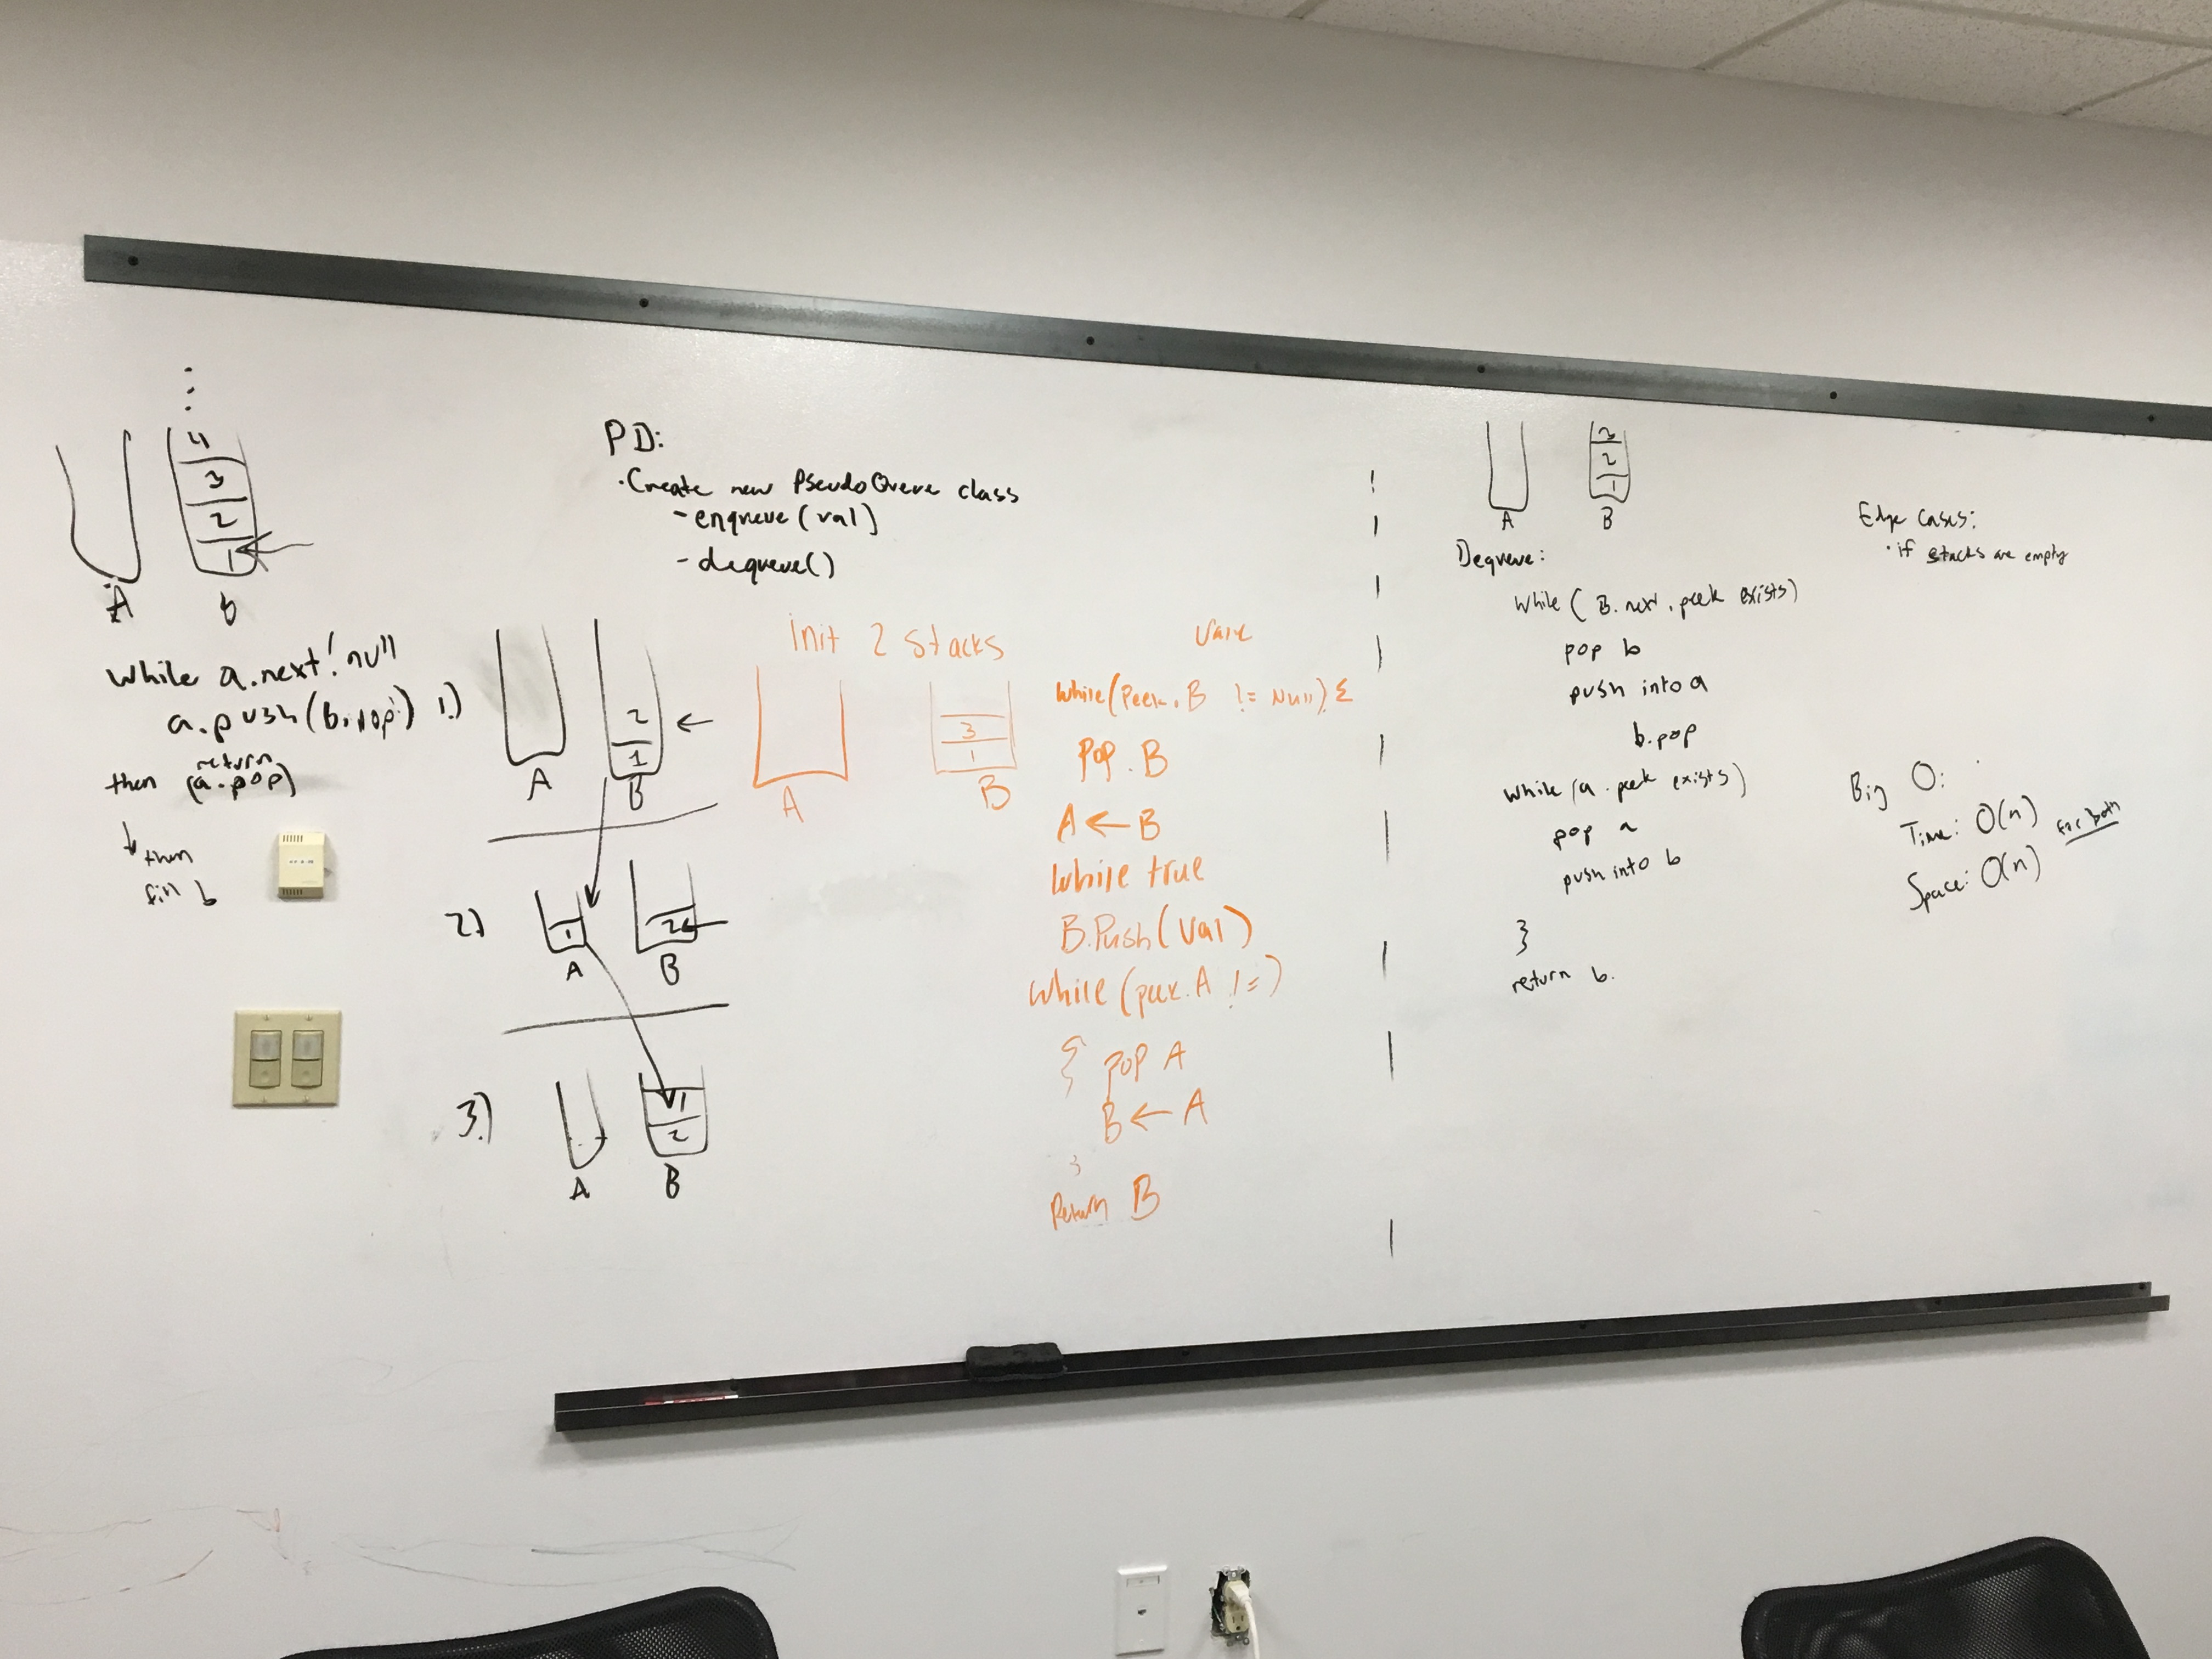 4
3
2
1
A
b
while a.next! null
a.push(b.pop)
return
then (a.pop)
then
fill b
PD:
· Create new PseudoQueue class
- enqueue (val)
- dequeue()
1.)
2
1
A
B
2.)
1
A
2
B
3.)
1
2
A
B
Init 2 stacks
3
1
A
B
while(Peek.B != Null) {
Pop.B
A ← B
while true
B.Push(val)
while (peek.A !=)
{ pop A
B ← A
}
Return B
3
2
1
A
B
Dequeue:
while ( B.next.peek exists)
pop b
push into a
b.pop
while (a.peek exists)
pop a
push into b
}
return b.
Edge Cases:
· if stacks are empty
Big O:
Time: O(n)
for both
Space: O(n)